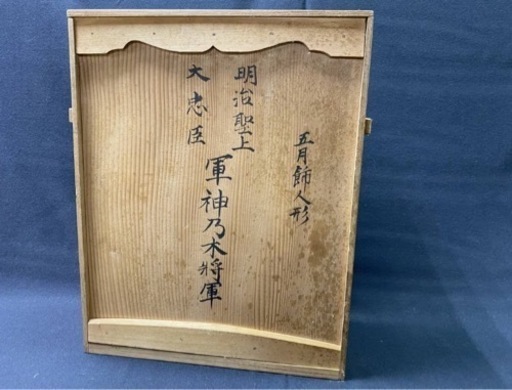 五月飾人形
明治聖上
大忠臣
軍神乃木将軍